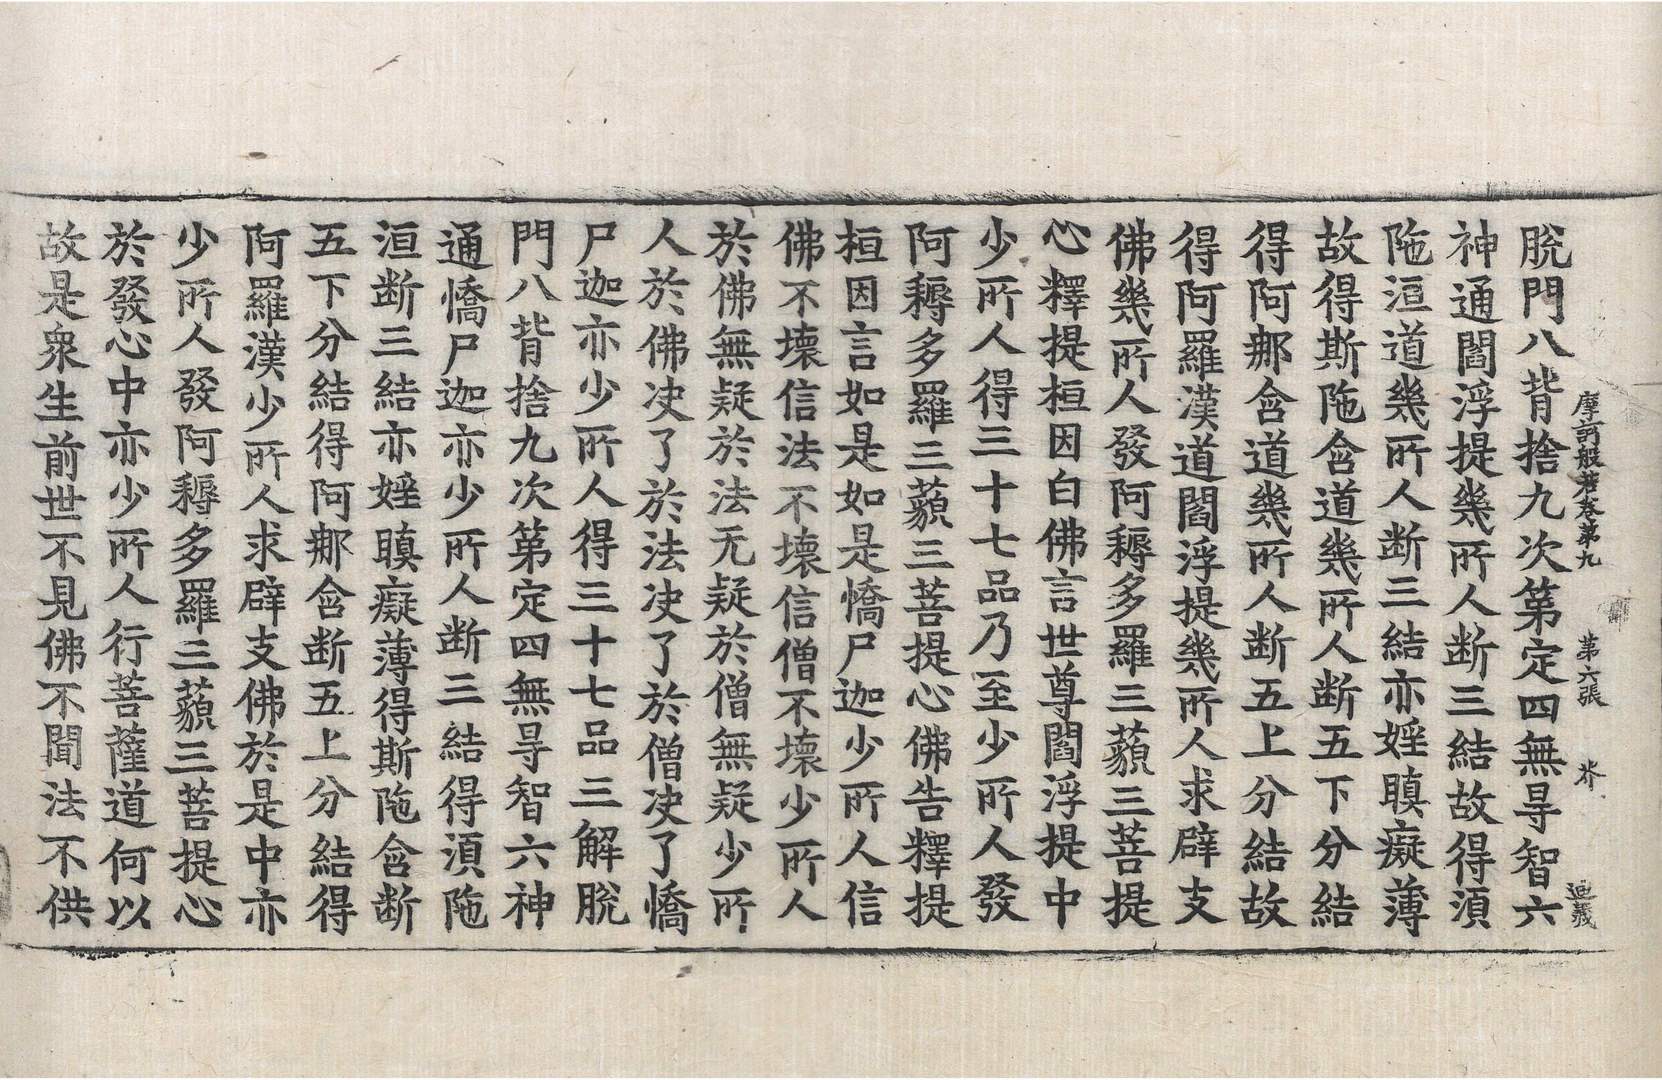 摩訶般若卷第九 第六張 芥 迪義
脫門八背捨九次第定四無㝵智六
神通閻浮提幾所人断三結故得湏
陁洹道幾所人断三結亦婬瞋癡薄
故得斯陁含道幾所人断五下分結
得阿那含道幾所人断五上分結故
得阿羅漢道閻浮提幾所人求辟支
佛幾所人發阿耨多羅三藐三菩提
心釋提桓因白佛言世尊閻浮提中
少所人得三十七品乃至少所人發
阿耨多羅三藐三菩提心佛告釋提
桓因言如是如是憍尸迦少所人信
佛不壞信法不壞信僧不壞少所人
於佛無疑於法无疑於僧無疑少所
人於佛决了於法决了於僧决了憍
尸迦亦少所人得三十七品三解脫
門八背捨九次第定四無㝵智六神
通憍尸迦亦少所人断三結得湏陁
洹断三結亦婬瞋癡薄得斯陁含断
五下分結得阿那含断五上分結得
阿羅漢少所人求辟支佛於是中亦
少所人發阿耨多羅三藐三菩提心
於發心中亦少所人行菩薩道何以
故是衆生前世不見佛不聞法不供